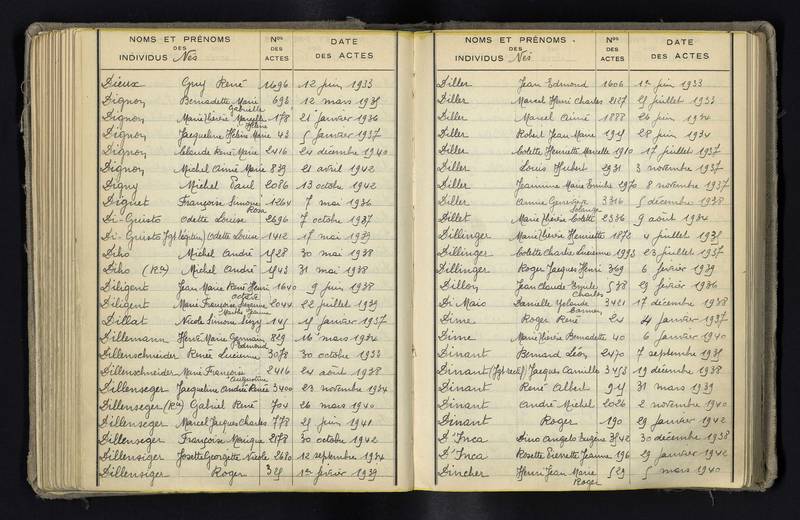 NOMS ET PRÉNOMS
DES
INDIVIDUS Nés
Nos
DES
ACTES
DATE
DES ACTES
Dieux Guy René 1696 12 juin 1933
Dignon Bernadette Marie Gabrielle 693 12 mars 1935
Dignon Marie Thérèse Marcelle 178 21 janvier 1936
Dignon Jacqueline Hélène Marie 43 5 janvier 1937
Dignon Claude René Marie 2416 24 décembre 1940
Dignon Michel Aimé Marie 839 21 avril 1942
Digny Michel Paul 2086 13 octobre 1942
Diguet Françoise Simone Rose 1264 7 mai 1936
Di-Giusto Odette Louise 2696 7 octobre 1937
Di-Giusto Odette Louise 1412 17 mai 1939
Diho Michel André 1528 30 mai 1938
Diho Michel André 1543 31 mai 1938
Diligent Jean Marie René Henri 1640 9 juin 1938
Diligent Marie Françoise 2044 22 juillet 1939
Dillat Nicole Simone 145 15 janvier 1937
Dillemann Henri Marie Germain Edmond 829 16 mars 1934
Dillenschneider Renée Lucienne 3078 30 octobre 1933
Dillenschneider Marie Françoise Augustine 2416 24 août 1938
Dillenseger Jacqueline Andrée Renée 3400 23 novembre 1934
Dillenseger Gabriel René 704 26 mars 1940
Dillenseger Marcel Jacques Charles 778 25 juin 1941
Dillenseger Françoise Monique 2178 30 octobre 1942
Dillensiger Josette Georgette Nicole 2680 12 septembre 1934
Dillensiger Roger 325 1er février 1939
NOMS ET PRÉNOMS
DES
INDIVIDUS Nés
Nos
DES
ACTES
DATE
DES ACTES
Diller Jean Edmond 1606 1er juin 1933
Diller Marcel Henri Charles 2127 25 juillet 1933
Diller Marcel Aimé 1888 26 juin 1934
Diller Robert Jean Marie 1915 28 juin 1934
Diller Colette Henriette Marcelle 1910 17 juillet 1937
Diller Louis Hubert 2931 3 novembre 1937
Diller Jeannine Marie Emilie 2970 8 novembre 1937
Diller Annie Geneviève 3316 5 décembre 1938
Dillet Marie Thérèse Colette Solange 2336 9 août 1934
Dillinger Marie Thérèse Henriette 1872 4 juillet 1935
Dillinger Colette Charlie Lucienne 1993 23 juillet 1937
Dillinger Roger Jacques Henri 369 6 février 1939
Dillon Jean Claude Emile Charles 538 29 février 1936
Di Maio Danielle Yolande Carmen 3421 17 décembre 1938
Dime Roger René 24 4 janvier 1937
Dime Marie Thérèse Bernadette 40 6 janvier 1940
Dinant Bernard Léon 2470 7 septembre 1935
Dinant Jacques Camille 3453 19 décembre 1938
Dinant René Albert 915 31 mars 1939
Dinant André Michel 2026 2 novembre 1940
Dinant Roger 190 29 janvier 1942
D'Inca Dino Angelo Eugène 3542 30 décembre 1938
D'Inca Rosette Pierrette Jeanne 196 29 janvier 1942
Dincher Henri Jean Marie Roger 529 5 mars 1940